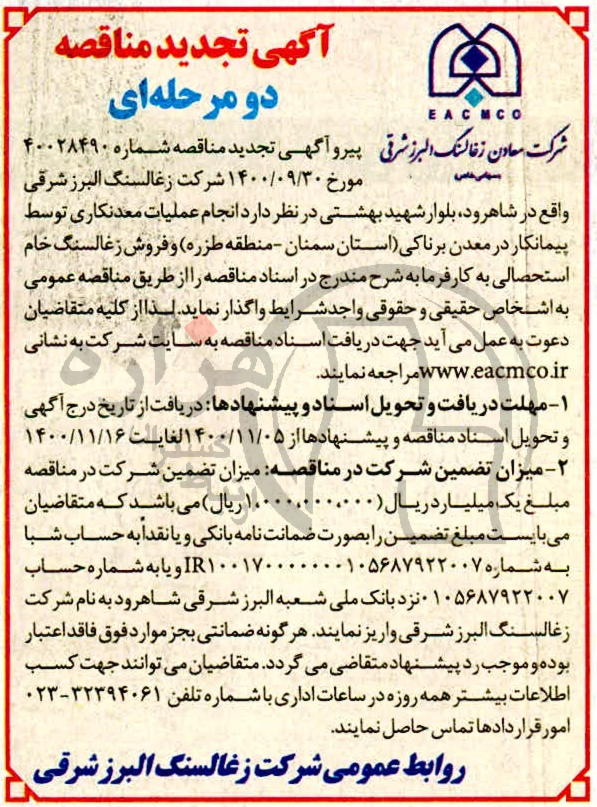 آگهی تجدید مناقصه
دو مرحله‌ای
EACMCO
شرکت معادن زغالسنگ البرز شرقی
پیرو آگهی تجدید مناقصه شماره ۴۰۰۲۸۴۹۰
مورخ ۱۴۰۰/۰۹/۳۰ شرکت زغالسنگ البرز شرقی
واقع در شاهرود، بلوار شهید بهشتی در نظر دارد انجام عملیات معدنکاری توسط
پیمانکار در معدن برناکی (استان سمنان -منطقه طزره) و فروش زغالسنگ خام
استحصالی به کارفرما به شرح مندرج در اسناد مناقصه را از طریق مناقصه عمومی
به اشخاص حقیقی و حقوقی واجد شرایط واگذار نماید. لذا از کلیه متقاضیان
دعوت به عمل می آید جهت دریافت اسناد مناقصه به سایت شرکت به نشانی
www.eacmco.ir مراجعه نمایند.
۱-مهلت دریافت و تحویل اسناد و پیشنهادها: دریافت از تاریخ درج آگهی
و تحویل اسناد مناقصه و پیشنهادها از ۱۴۰۰/۱۱/۰۵ لغایت ۱۴۰۰/۱۱/۱۶
۲-میزان تضمین شرکت در مناقصه: میزان تضمین شرکت در مناقصه
مبلغ یک میلیارد ریال (۱,۰۰۰,۰۰۰,۰۰۰ ریال) می باشد که متقاضیان
می بایست مبلغ تضمین را بصورت ضمانت نامه بانکی و یا نقداً به حساب شبا
به شماره IR۱۰۰۱۷۰۰۰۰۰۰۰۰۱۰۵۶۸۷۹۲۲۰۰۷ و یا به شماره حساب
۰۱۰۵۶۸۷۹۲۲۰۰۷ نزد بانک ملی شعبه البرز شرقی شاهرود به نام شرکت
زغالسنگ البرز شرقی واریز نمایند. هر گونه ضمانتی بجز موارد فوق فاقد اعتبار
بوده و موجب رد پیشنهاد متقاضی می گردد. متقاضیان می توانند جهت کسب
اطلاعات بیشتر همه روزه در ساعات اداری با شماره تلفن ۳۲۳۹۴۰۶۱-۰۲۳
امور قراردادها تماس حاصل نمایند.
روابط عمومی شرکت زغالسنگ البرز شرقی
هزاره